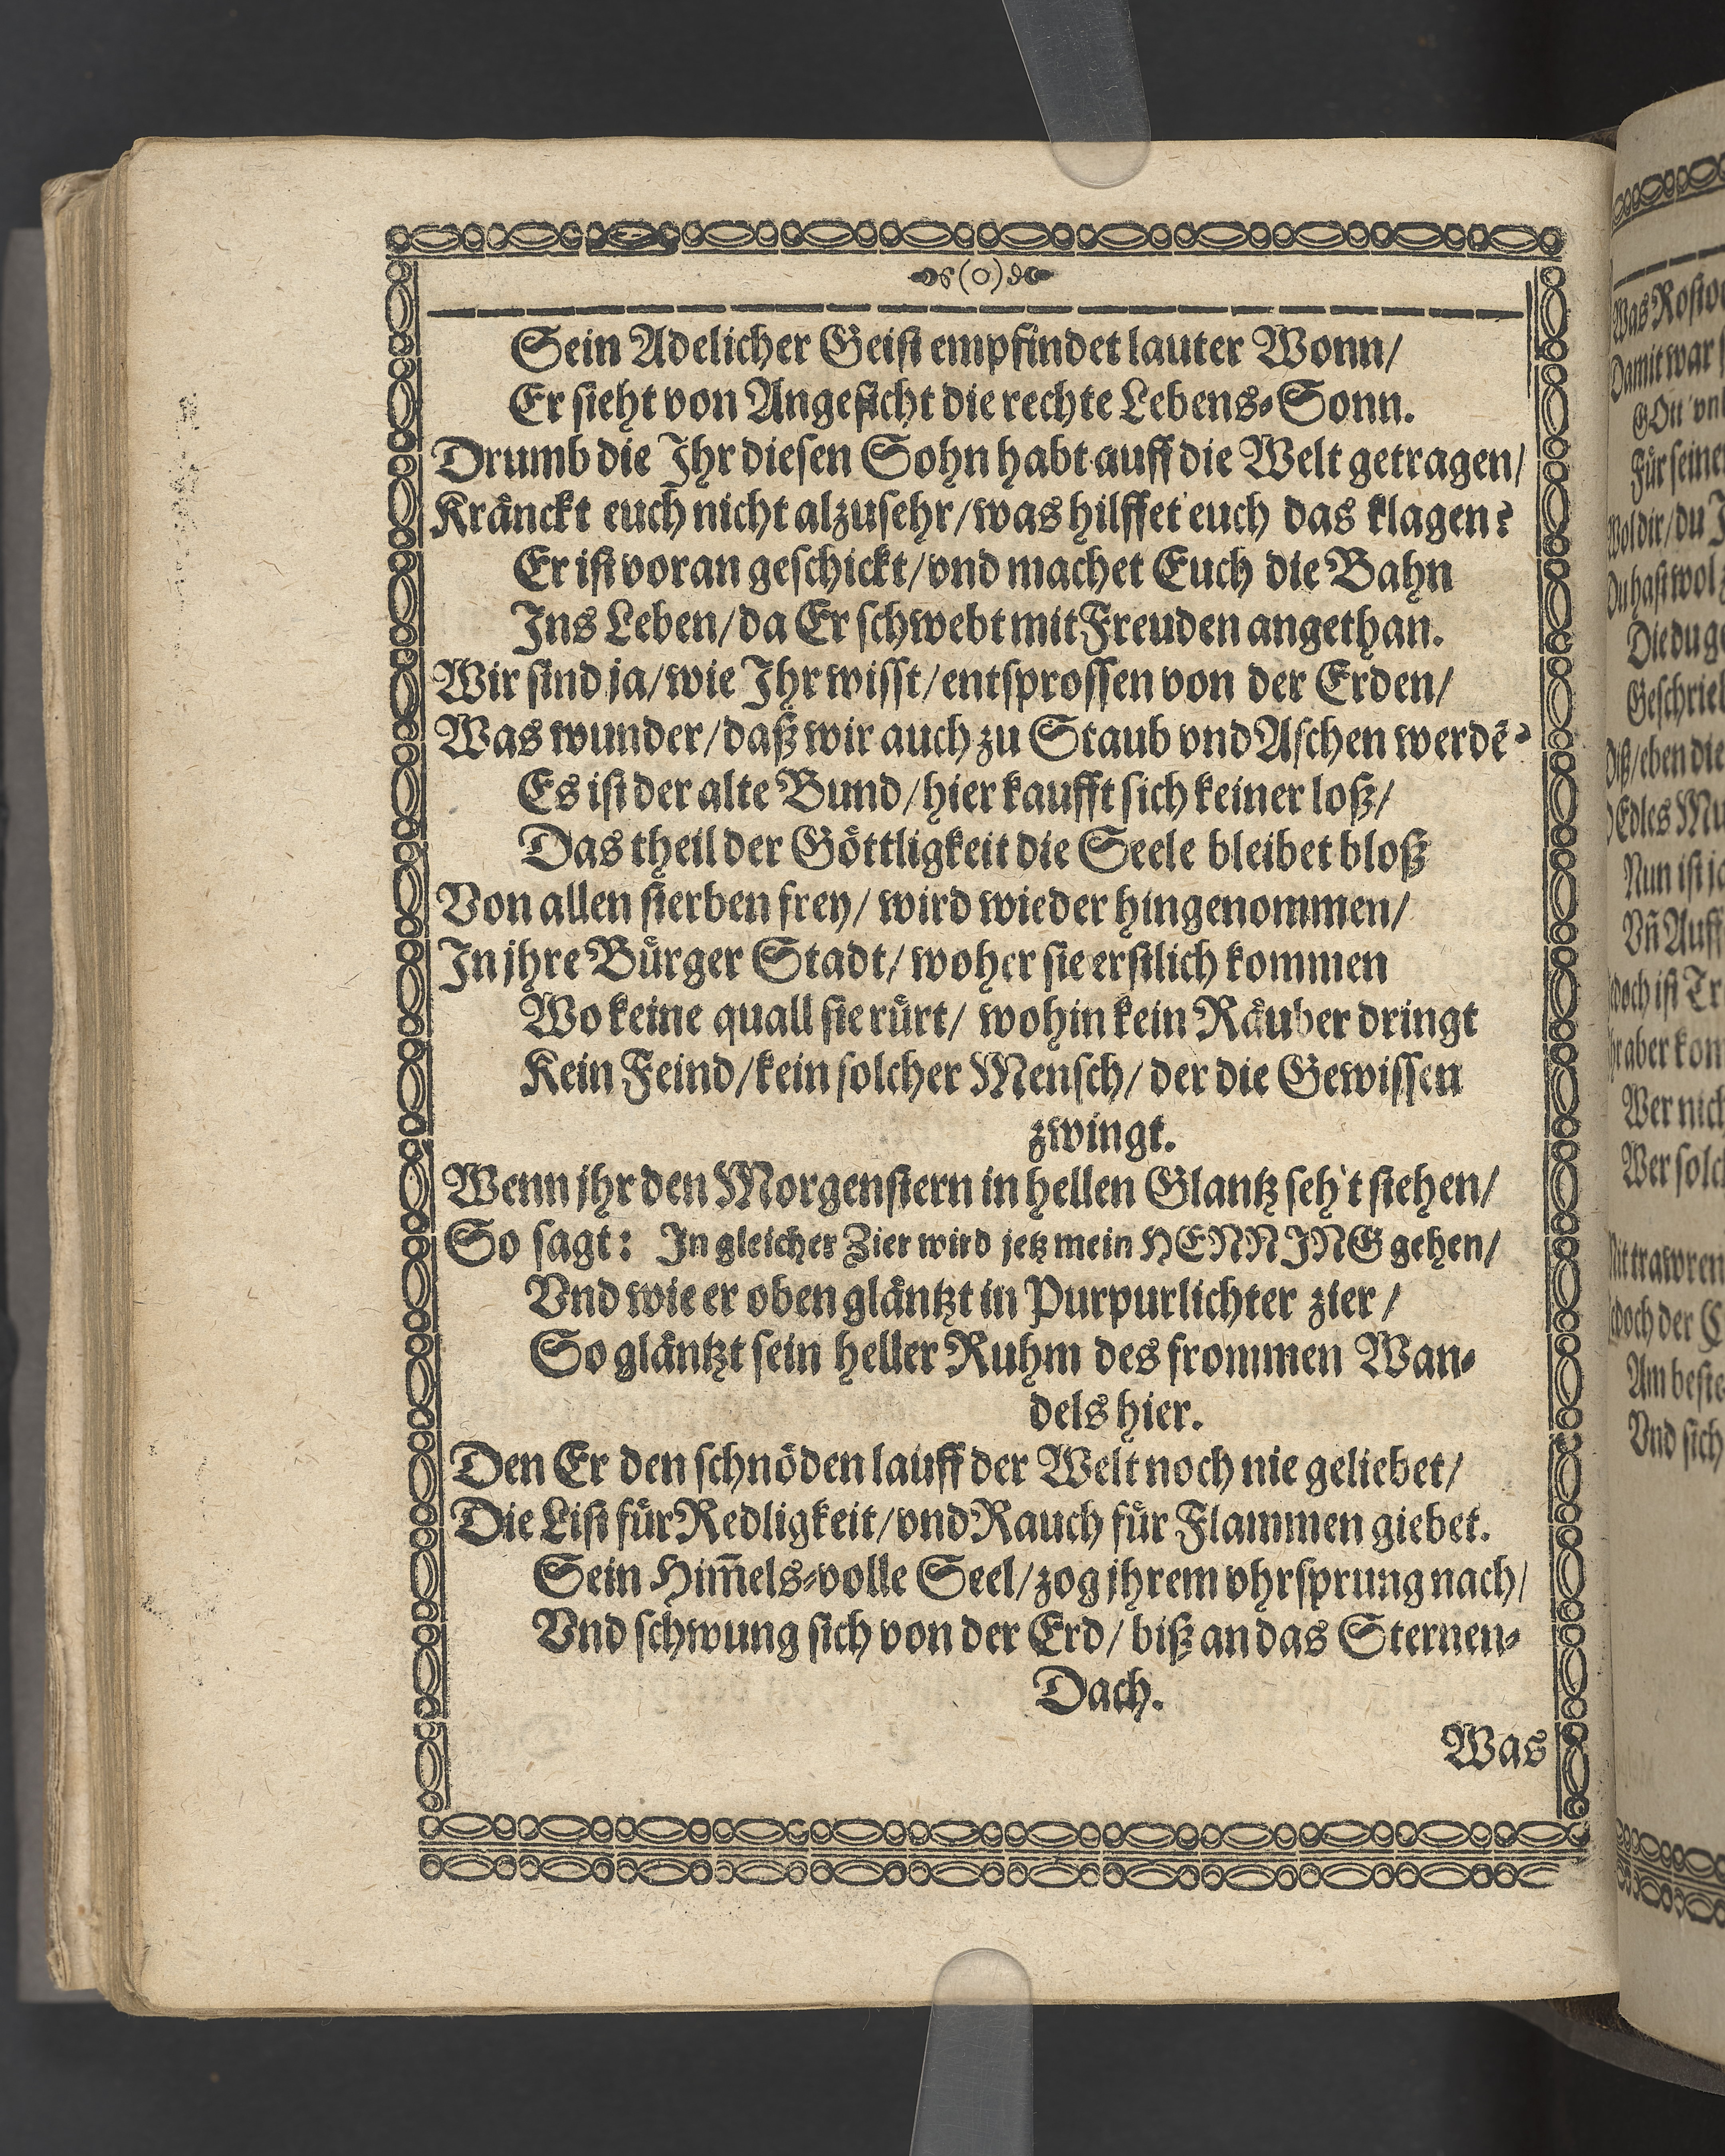 (o)
Sein Adelicher Geist empfindet lauter Wonn/
Er sieht von Angesicht die rechte Lebens-Sonn.
Drumb die Ihr diesen Sohn habt auff die Welt getragen/
Kränckt euch nicht alzusehr/was hilffet euch das klagen?
Er ist voran geschickt/vnd machet Euch die Bahn
Ins Leben/da Er schwebt mit Freuden angethan.
Wir sind ja/wie Ihr wisst/entsprossen von der Erden/
Was wunder/daß wir auch zu Staub vnd Aschen werdē?
Es ist der alte Bund/hier kaufft sich keiner loß/
Das theil der Göttligkeit die Seele bleibet bloß
Von allen sterben frey/ wird wieder hingenommen/
In jhre Bürger Stadt/ woher sie erstlich kommen
Wo keine quall sie rürt/ wohin kein Räuber dringt
Kein Feind/kein solcher Mensch/ der die Gewissen
zwingt.
Wenn jhr den Morgenstern in hellen Glantz seh't stehen/
So sagt: In gleicher Zier wird jetz mein HENNING gehen/
Vnd wie er oben gläntzt in Purpurlichter zier/
So gläntzt sein heller Ruhm des frommen Wan-
dels hier.
Den Er den schnöden lauff der Welt noch nie geliebet/
Die List für Redligkeit/vnd Rauch für Flammen giebet.
Sein Him̄els-volle Seel/zog jhrem vhrsprung nach/
Vnd schwung sich von der Erd/ biß an das Sternen-
Dach.
Was